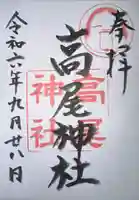 奉拝
高尾神社
高尾神社
令和六年九月廿八日